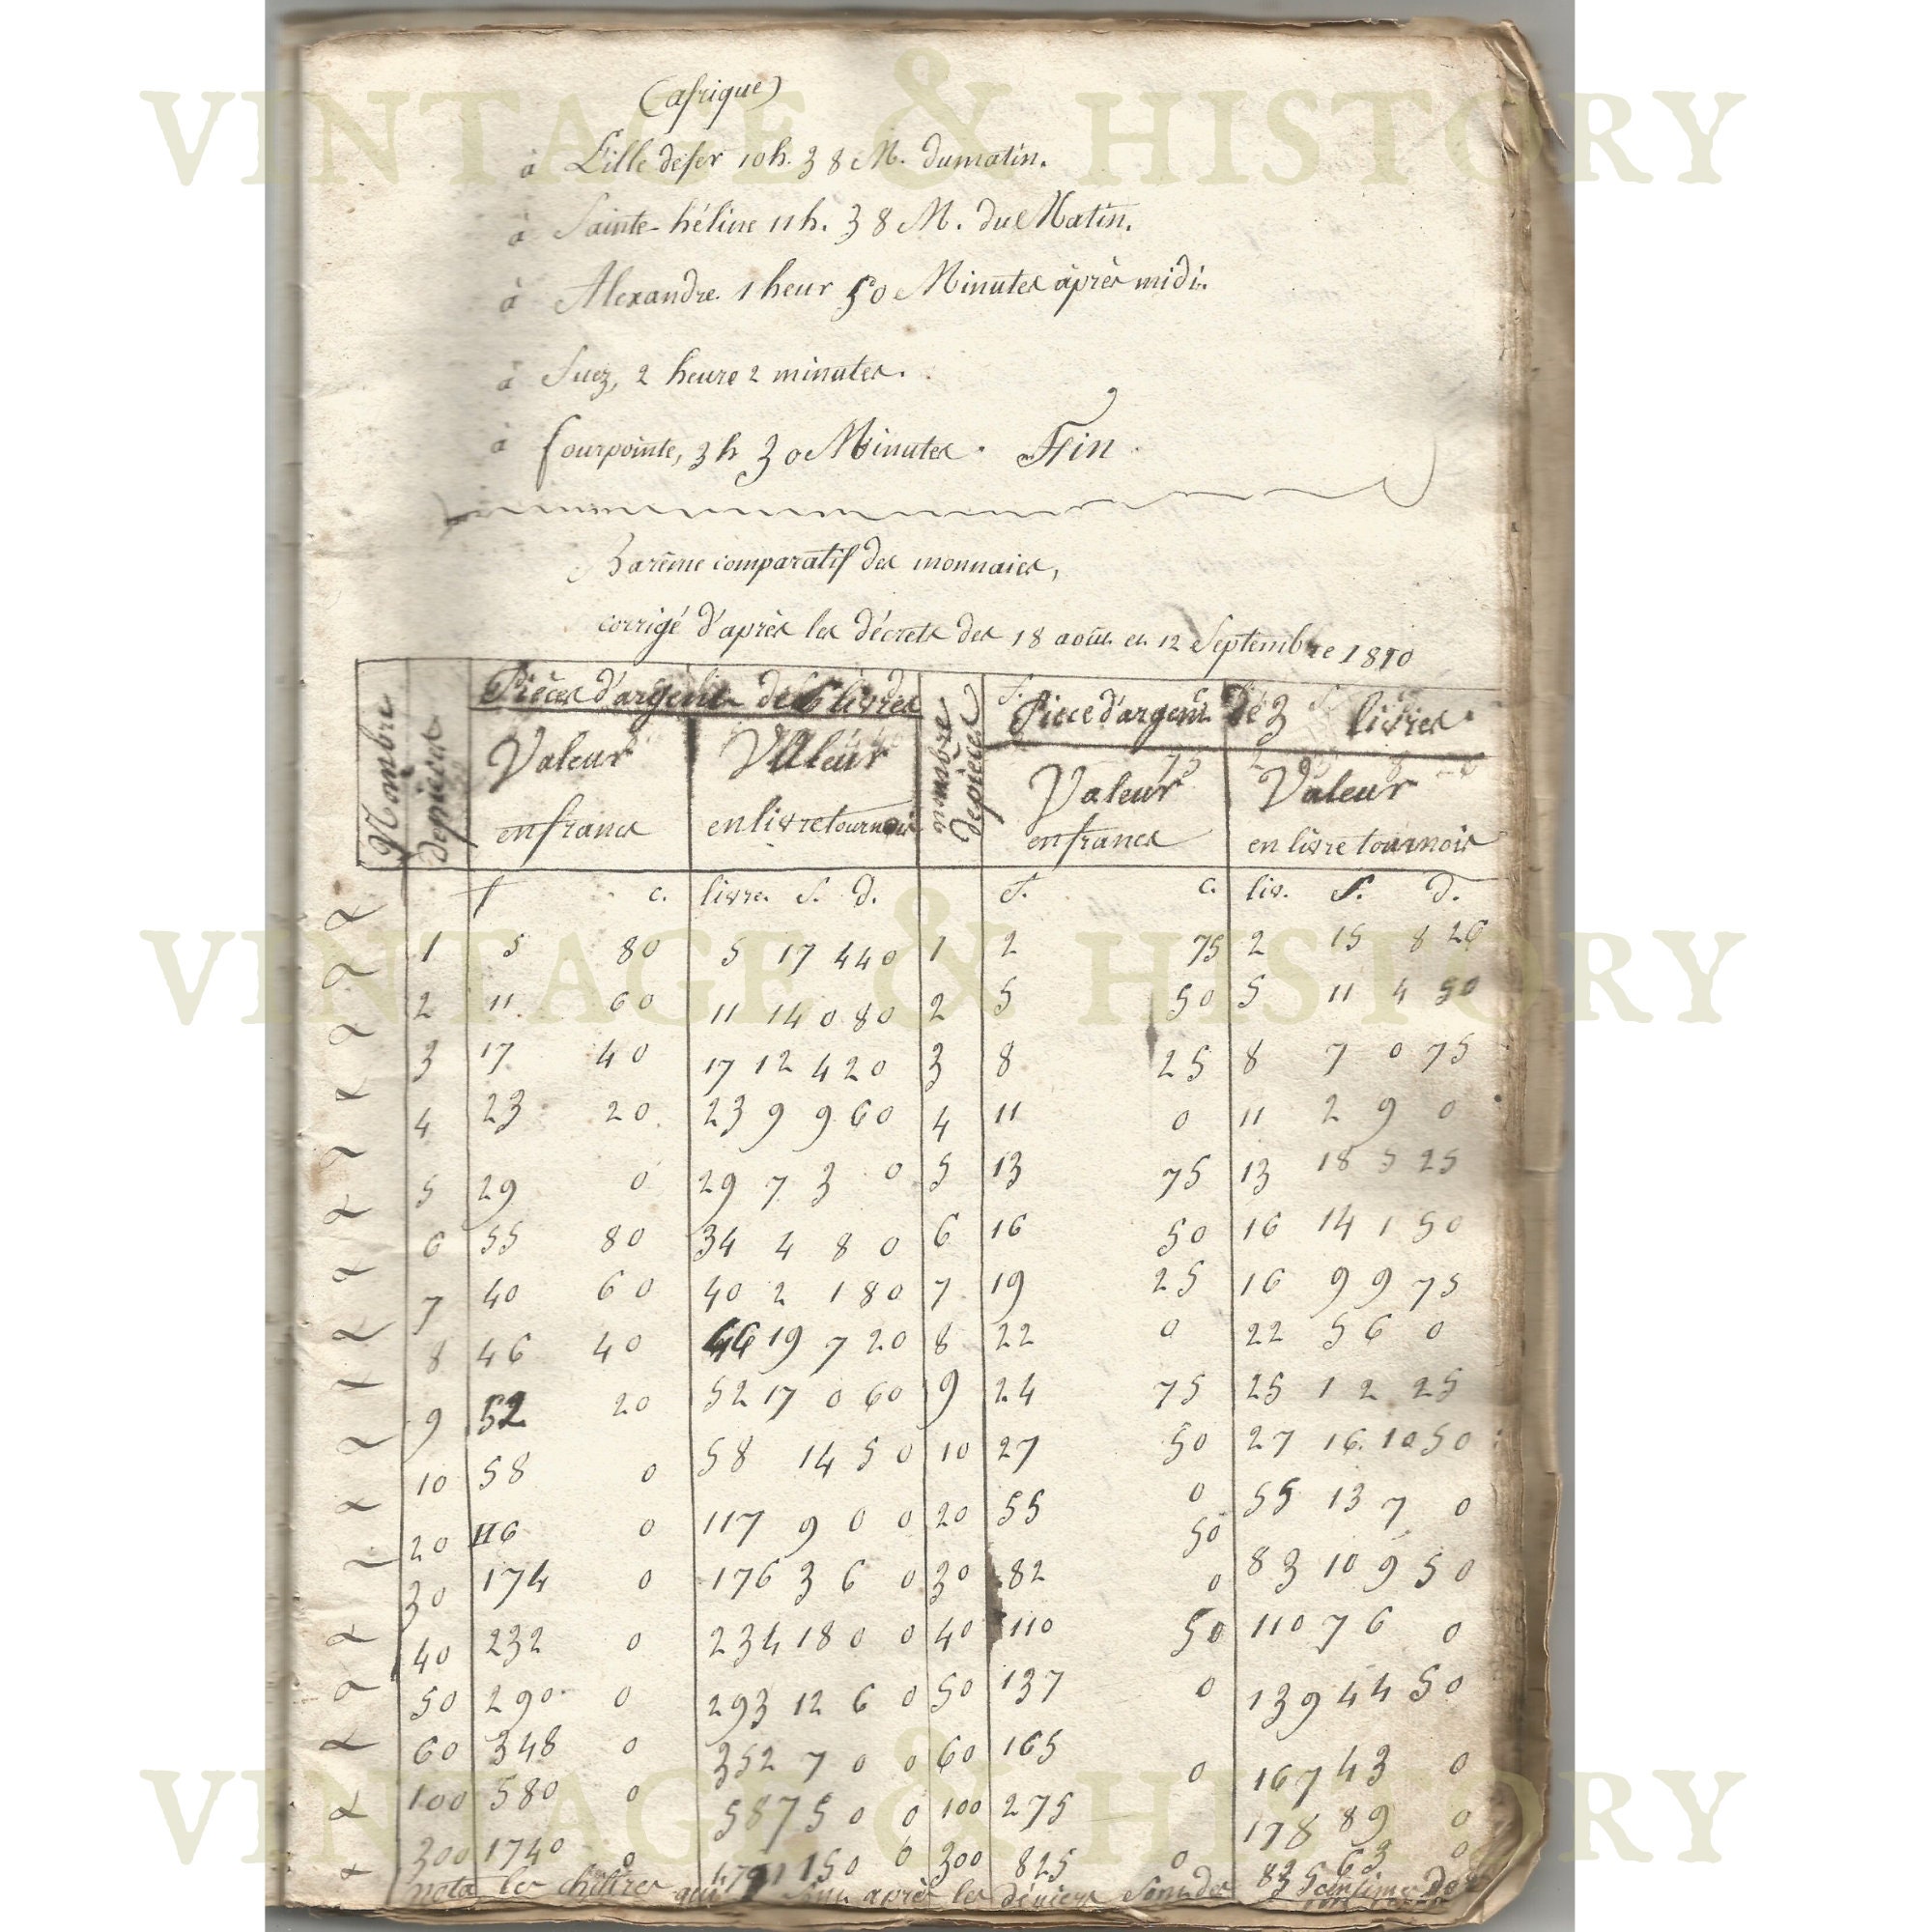 VINTAGE & HISTORY
(afrique)
à Lille defer 10h. 38 M. dumatin.
à Sainte-héline 11h. 38 M. du Matin.
à Alexandre 1 heur 50 Minutes àprès midi.
à Suez, 2 heure 2 minutes.
à Courpointe, 3h 30 Minutes. Fin
Barême comparatif des monnaies,
corrigé d'après les décrets des 18 août et 12 Septembre 1810
Nombre depièces | Pièces d'argent de 6 livres | nombre depièces | Pièce d'argent de 3 livres.
Valeur en francs | Valeur en livre tournois | Valeur en francs | Valeur en livre tournois
f c. | livre. S. d. | f. c. | liv. S. d.
1 | 5 80 | 5 17 4 40 | 1 | 2 75 | 2 15 8 26
VINTAGE & HISTORY
2 | 11 60 | 11 14 0 80 | 2 | 5 50 | 5 11 4 50
3 | 17 40 | 17 12 4 20 | 3 | 8 25 | 8 7 0 75
4 | 23 20 | 23 9 9 60 | 4 | 11 0 | 11 2 9 0
5 | 29 0 | 29 7 3 0 | 5 | 13 75 | 13 18 5 25
6 | 55 80 | 34 4 8 0 | 6 | 16 50 | 16 14 1 50
7 | 40 60 | 40 2 1 80 | 7 | 19 25 | 16 9 9 75
8 | 46 40 | 46 19 7 20 | 8 | 22 0 | 22 5 6 0
9 | 52 20 | 52 17 0 60 | 9 | 24 75 | 25 1 2 25
10 | 58 0 | 58 14 5 0 | 10 | 27 50 | 27 16. 10 50
20 | 116 0 | 117 9 0 0 | 20 | 55 0 | 55 13 7 0
30 | 174 0 | 176 3 6 0 | 30 | 82 50 | 83 10 9 50
40 | 232 0 | 234 18 0 0 | 40 | 110 0 | 110 7 6 0
50 | 290 0 | 293 12 6 0 | 50 | 137 50 | 139 4 4 50
60 | 348 0 | 352 7 0 0 | 60 | 165 0 | 167 4 3 0
VINTAGE & HISTORY
100 | 580 0 | 587 5 0 0 | 100 | 275 0 | 178 8 9 0
300 | 1740 0 | 1791 15 0 0 | 300 | 825 0 | 83 5 6 3 0
nota les chiffres qui sont après les déniers sont des centimes